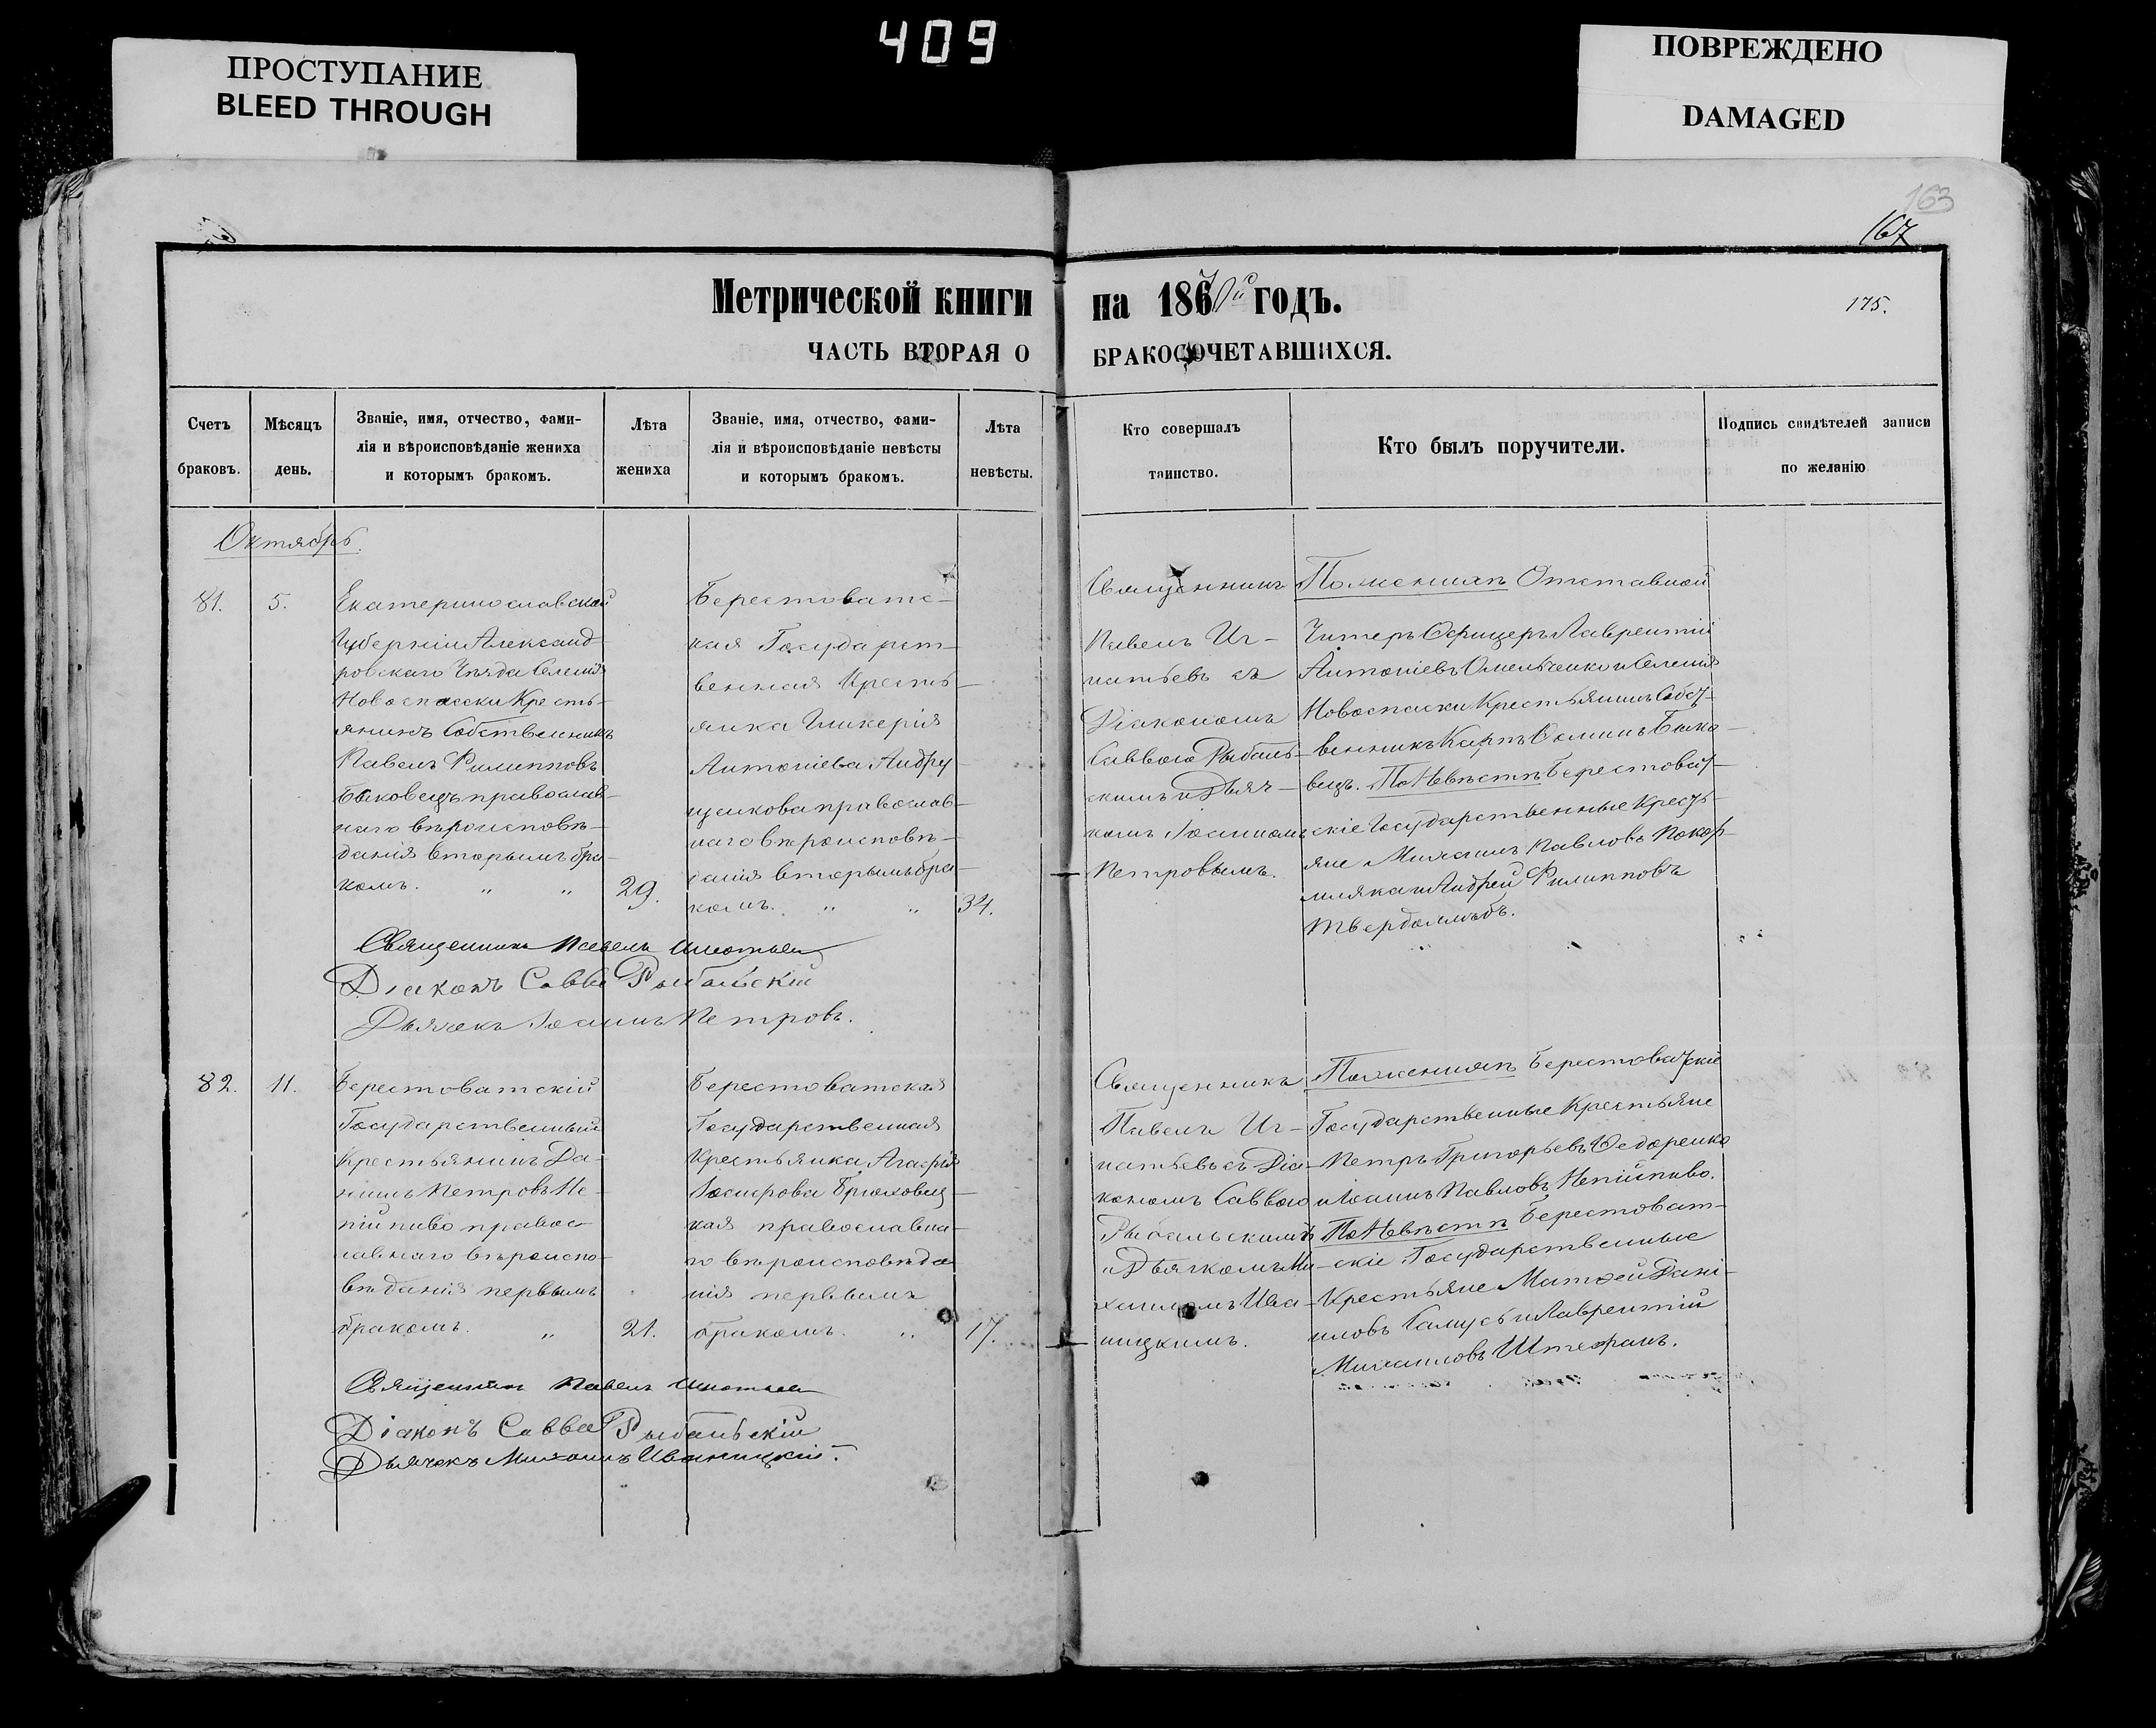 409
ПРОСТУПАНИЕ
BLEED THROUGH
ПОВРЕЖДЕНО
DAMAGED
163
167
175.
Метрической книги
на 1870й годъ.
ЧАСТЬ ВТОРАЯ О
БРАКОСОЧЕТАВШИХСЯ.
Счетъ
браковъ.
Мѣсяцъ
день.
Званіе, имя, отчество, фами-
лія и вѣроисповѣданіе жениха
и которымъ бракомъ.
Лѣта
жениха
Званіе, имя, отчество, фами-
лія и вѣроисповѣданіе невѣсты
и которымъ бракомъ.
Лѣта
невѣсты.
Кто совершалъ
таинство.
Кто былъ поручители.
Подпись свидѣтелей записи
по желанію
Октябрь.
81.
5.
Екатеринославской
Губерніи Александ-
ровскаго Уѣзда Селенія
Новоспасски Кресть-
янинъ Собственникъ
Павелъ Филипповъ
Быковецъ православ-
наго вѣроисповѣ-
данія вторымъ бра-
комъ. " "
29.
Берестоватс-
кая Государст-
венная Кресть-
янка Гликерія
Антоніева Андру-
щенкова православ-
наго вѣроисповѣ-
данія вторымъ бра-
комъ. " "
34.
Священникъ
Павелъ Иг-
натьевъ съ
Діакономъ
Саввою Рыбаль-
скимъ и Дьяч-
комъ Іоанномъ
Петровымъ.
По женихѣ Отставной
Унтеръ Офицеръ Лаврентій
Антоніевъ Омельченко и Селенія
Новоспаски Крестьянинъ Собст-
венникъ Карпъ Быко-
вецъ. По Невѣстѣ Берестоват-
скіе Государственные Кресть-
яне Михаилъ Павловъ
и Андрей Филипповъ
Твердохлѣбъ.
Священникъ Павелъ Игнатьевъ
Діаконъ Савва Рыбальскій
Дьячекъ Іоаннъ Петровъ.
82.
11.
Берестоватскій
Государственный
Крестьянинъ Да-
ніилъ Петровъ Не-
пійпиво правос-
лавнаго вѣроиспо-
вѣданія первымъ
бракомъ. "
21.
Берестоватская
Государственная
Крестьянка Агафія
Іосифова Брюховец-
кая православна-
го вѣроисповѣда-
нія первымъ
бракомъ. "
17.
Священникъ
Павелъ Иг-
натьевъ съ Діа-
кономъ Саввою
Рыбальскимъ
и Дьячкомъ Ми-
хаиломъ Ива-
ницкимъ.
По женихѣ Берестоватскіе
Государственные Крестьяне
Петръ Григорьевъ Федоренко
и Іоаннъ Павловъ Непійпиво.
По Невѣстѣ Берестоват-
скіе Государственные
Крестьяне Матфей Дані-
иловъ Самусь и Лаврентій
Михаиловъ Штефанъ.
Священникъ Павелъ Игнатьевъ
Діаконъ Савва Рыбальскій
Дьячекъ Михаилъ Иваницкій.